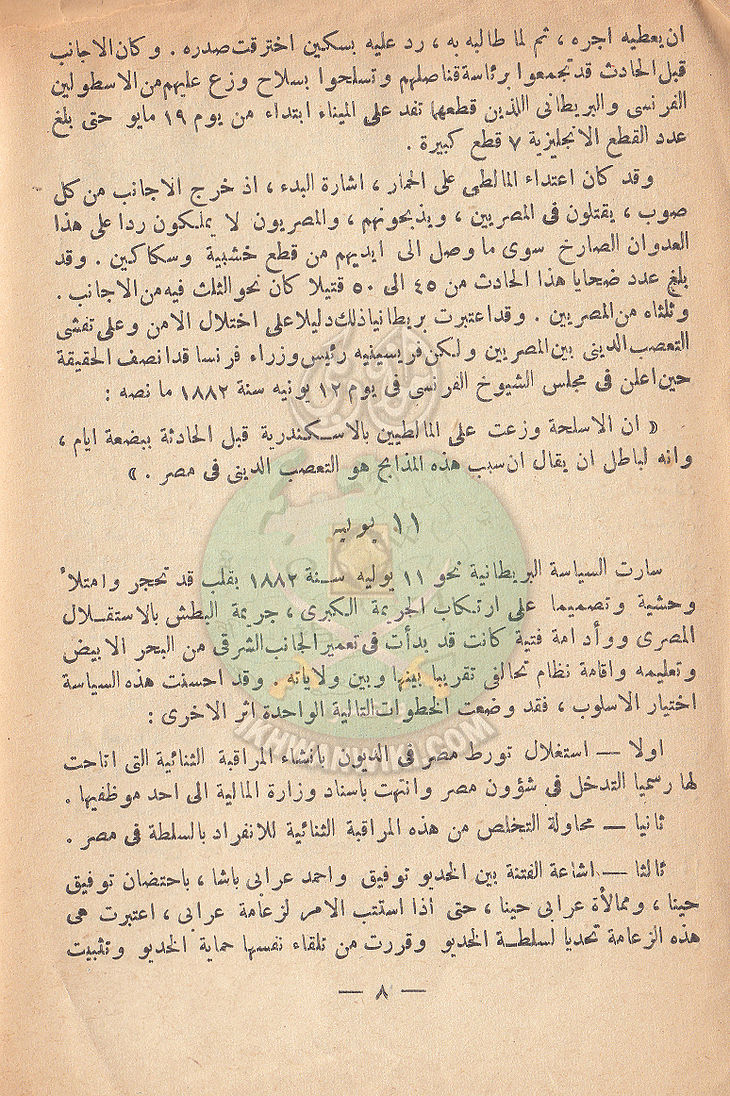 ان يعطيه اجره ، ثم لما طالبه به ، رد عليه بسكين اخترقت صدره . وكان الاجانب
قبل الحادث قد تجمعوا برئاسة قناصلهم وتسلحوا بسلاح وزع عليهم من الاسطولين
الفرنسى والبريطانى اللذين قطعها تفد على الميناء ابتداء من يوم ١٩ مايو حتى بلغ
عدد القطع الانجليزية ٧ قطع كبيرة .
وقد كان اعتداء المالطى على الحمار ، اشارة البدء ، اذ خرج الاجانب من كل
صوب ، يقتلون فى المصريين ، ويذبحونهم ، والمصريون لا يملكون ردا على هذا
العدوان الصارخ سوى ما وصل الى ايديهم من قطع خشبية وسكاكين . وقد
بلغ عدد ضحايا هذا الحادث من ٤٥ الى ٥٠ قتيلا كان نحو الثلث فيه من الاجانب .
وثلثاه من المصريين . وقد اعتبرت بريطانيا ذلك دليلا على اختلال الامن وعلى تفشى
التعصب الدينى بين المصريين ولكن فريسينيه رئيس وزراء فرنسا قد انصف الحقيقة
حين اعلن فى مجلس الشيوخ الفرنسى فى يوم ١٢ يونيه سنة ١٨٨٢ ما نصه :
« ان الاسلحة وزعت على المالطيين بالاسكندرية قبل الحادثة ببضعة ايام ،
وانه لباطل ان يقال ان سبب هذه المذابح هو التعصب الدينى فى مصر . »
١١ يوليه
سارت السياسة البريطانية نحو ١١ يوليه سنة ١٨٨٢ بقلب قد تحجر وامتلأ
وحشية وتصميما على ارتكاب الجريمة الكبرى ، جريمة البطش بالاستقلال
المصرى ووأد امة فتية كانت قد بدأت فى تعمير الجانب الشرقى من البحر الابيض
وتعليمه واقامة نظام تحالفى تقريبا بينها وبين ولاياته . وقد احسنت هذه السياسة
اختيار الاسلوب ، فقد وضعت الخطوات التالية الواحدة اثر الاخرى :
اولا — استغلال تورط مصر فى الديون بانشاء المراقبة الثنائية التى اتاحت
لها رسميا التدخل فى شؤون مصر وانتهت باسناد وزارة المالية الى احد موظفيها .
ثانيا — محاولة التخلص من هذه المراقبة الثنائية للانفراد بالسلطة فى مصر .
ثالثا — اشاعة الفتنة بين الخديو توفيق واحمد عرابى باشا ، باحتضان توفيق
حينا ، وممالأة عرابى حينا ، حتى اذا استتب الامر لزعامة عرابى ، اعتبرت هى
هذه الزعامة تحديا لسلطة الخديو وقررت من تلقاء نفسها حماية الخديو وتثبيت
— ٨ —
IKHWANWIKI.COM